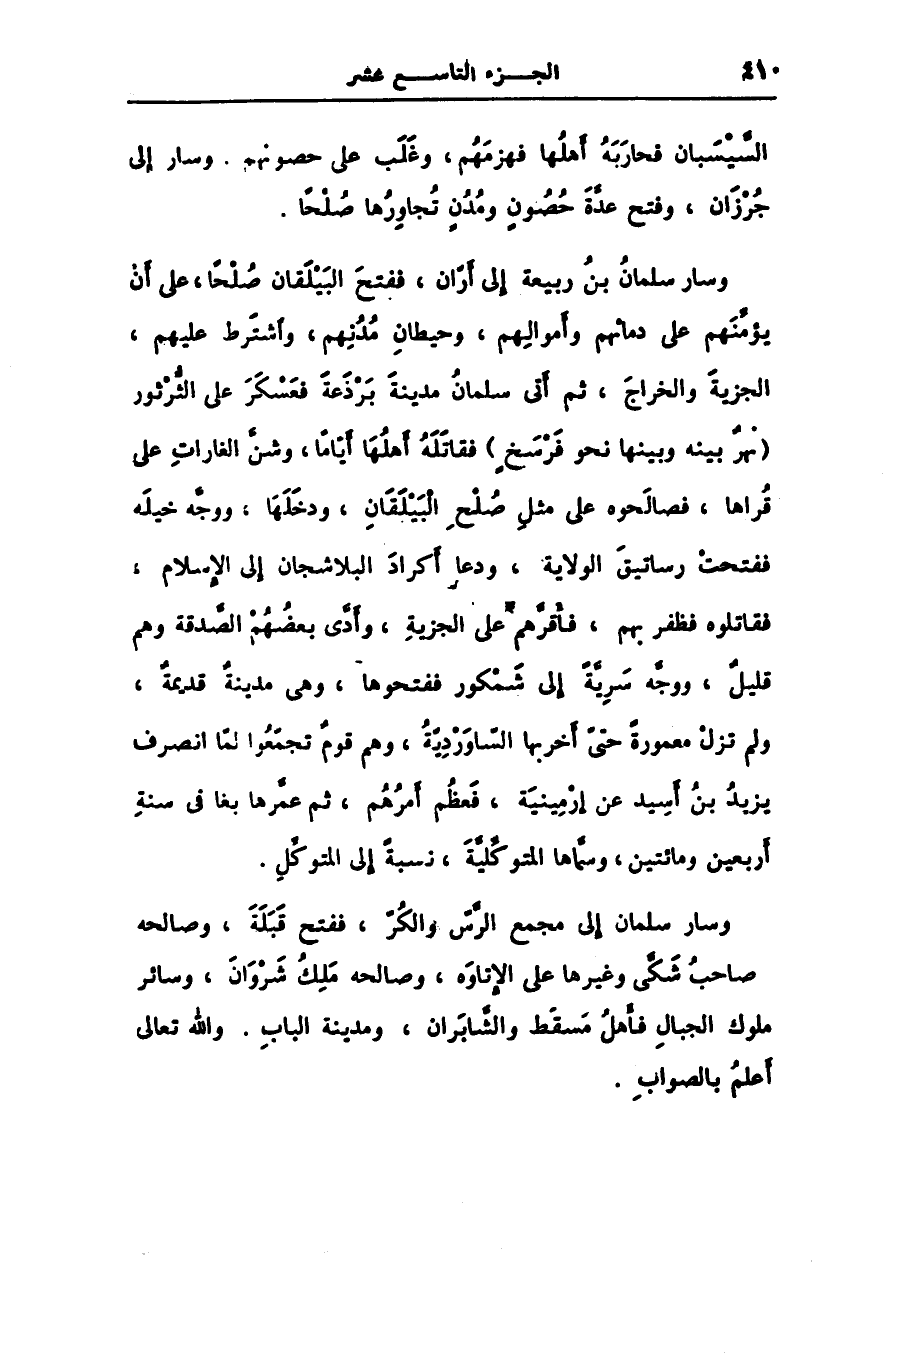 ٤١٠ الجزء التاسع عشر
السِّيْسَبان فحارَبَهُ أهلُها فهزمَهُم، وغَلَب على حصونهم . وسار إلى
جُرْزَان ، وفتح عدَّةَ حُصُونٍ ومُدُنٍ تُجاوِرُها صُلْحًا .
وسار سلمانُ بنُ ربيعة إلى أَرّان ، ففتحَ البَيْلَقان صُلْحًا، على أنْ
يؤمِّنَهم على دمائهم وأموالِهم ، وحيطانِ مُدُنِهم، وٱشتَرط عليهم ،
الجزيةَ والخراجَ ، ثم أتى سلمانُ مدينةَ بَرْذَعةَ فعَسْكَرَ على الثُّرْثور
(نهرٌ بينه وبينها نحو فَرْسَخٍ) فقاتَلَهُ أهلُهَا أيّامًا، وشنَّ الغاراتِ على
قُراها ، فصالَحوه على مثلِ صُلْحِ الْبَيْلَقَانِ ، ودخَلَهَا ، ووجَّه خيلَه
ففتحتْ رساتيقَ الولاية ، ودعا أكرادَ البلاشجان إلى الإسلام ،
فقاتلوه فظفر بهم ، فأقرَّهم على الجزيةِ ، وأدَّى بعضُهُمْ الصَّدقة وهم
قليلٌ ، ووجَّه سَرِيَّةً إلى شَمْكور ففتحوها ، وهى مدينةٌ قديمةٌ ،
ولم تزلْ معمورةً حتىّ أخربها السّاوَرْدِيّةُ ، وهم قومٌ تجمّعُوا لمّا انصرف
يزيدُ بنُ أَسِيد عن إرْمِينيَة ، فَعظُم أمرُهُم ، ثم عمَّرها بغا فى سنةِ
أربعين ومائتين، وسمَّاها المتوكِّليَّةَ ، نسبةً إلى المتوكِّلِ .
وسار سلمان إلى مجمع الرَّسّ والكُرّ ، ففتح قَبَلَةَ ، وصالحه
صاحبُ شَكَّى وغيرها على الإتاوَه ، وصالحه مَلِكُ شَرْوَانَ ، وسائر
ملوك الجبالِ فأهلُ مَسقَط والشَّابَران ، ومدينة البابِ . والله تعالى
أعلمُ بالصوابِ .